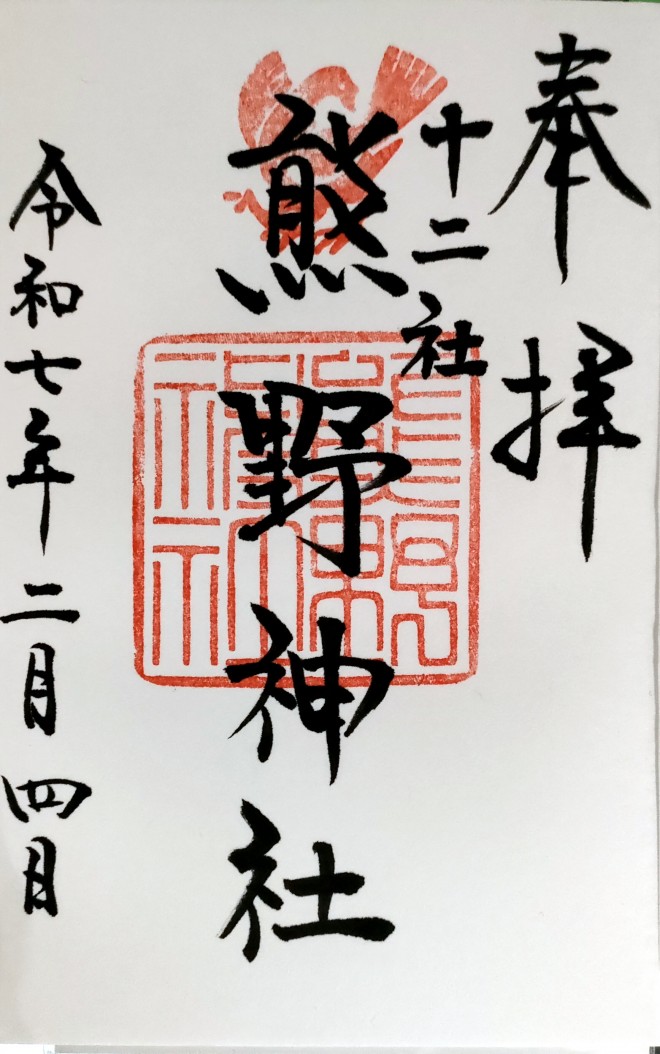 奉拝
十二社
熊野神社
令和七年二月四日